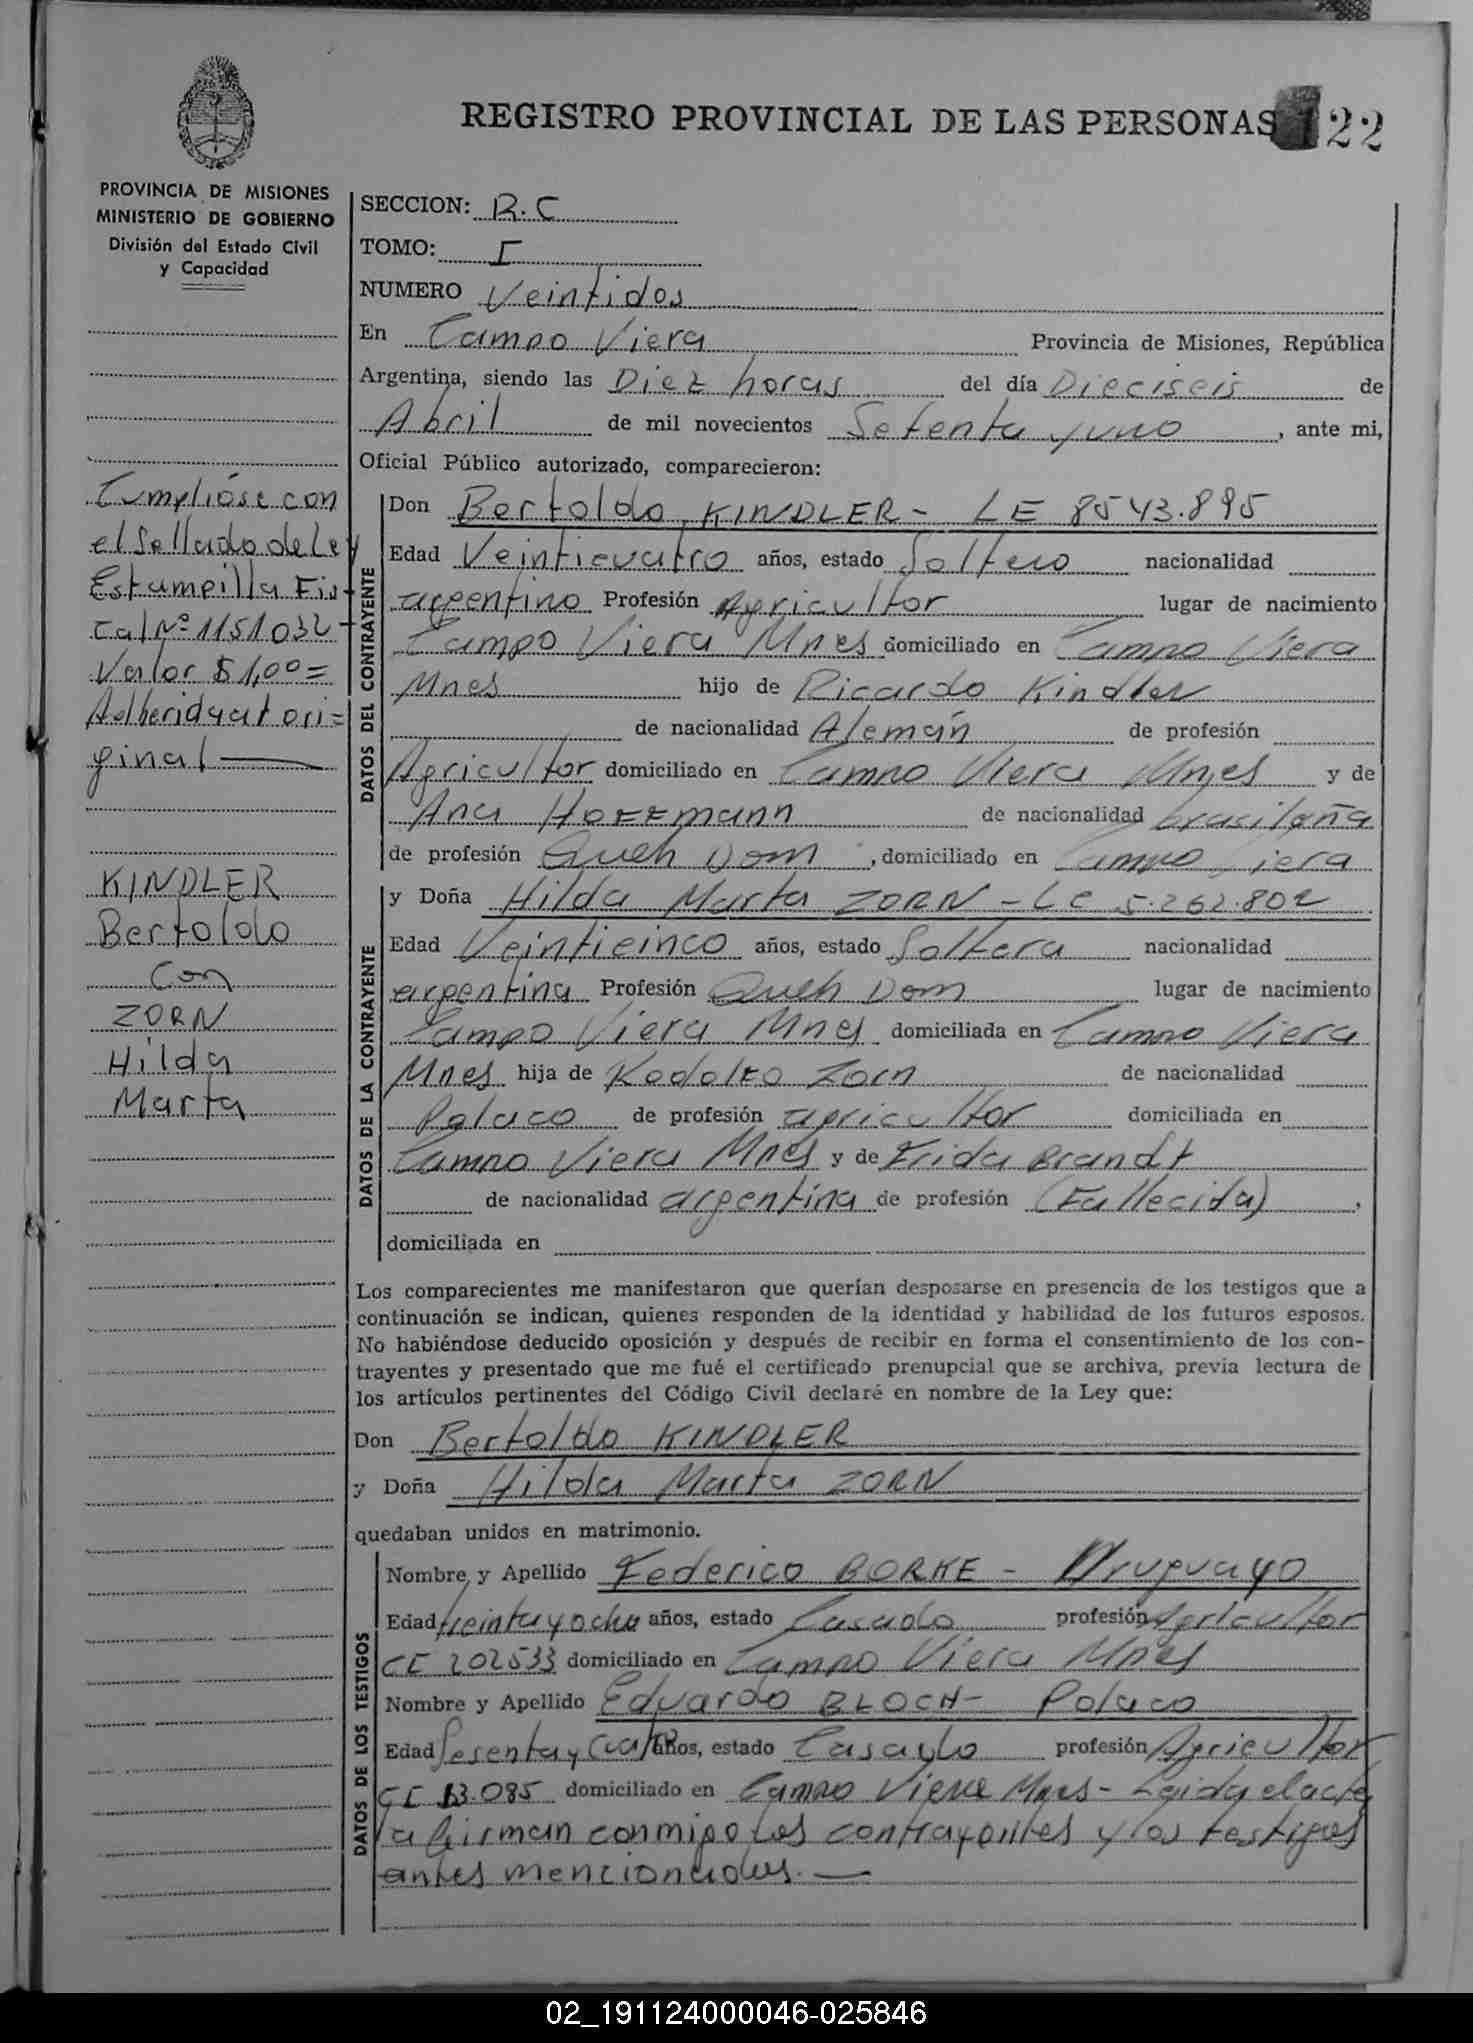 REGISTRO PROVINCIAL DE LAS PERSONAS 22
PROVINCIA DE MISIONES
MINISTERIO DE GOBIERNO
División del Estado Civil
y Capacidad
Cumplióse con
el Sellado de Ley
Estampilla Fis-
cal Nº 1151032
Valor $ 1,00=
Adherida al ori=
ginal
KINDLER
Bertoldo
con
ZORN
Hilda
Marta
SECCION: R.C
TOMO: I
NUMERO Veintidos
En Campo Viera Provincia de Misiones, República
Argentina, siendo las Diez horas del día Dieciseis de
Abril de mil novecientos Setenta y uno, ante mi,
Oficial Público autorizado, comparecieron:
DATOS DEL CONTRAYENTE
Don Bertoldo KINDLER - LE 8543.895
Edad Veinticuatro años, estado Soltero nacionalidad
argentino Profesión Agricultor lugar de nacimiento
Campo Viera Mnes domiciliado en Campo Viera
Mnes hijo de Ricardo Kindler
de nacionalidad Alemán de profesión
Agricultor domiciliado en Campo Viera Mnes y de
Ana Hoffmann de nacionalidad brasileña
de profesión Queh Dom, domiciliado en Campo Viera
DATOS DE LA CONTRAYENTE
y Doña Hilda Marta ZORN - LC 5.262.802
Edad Veinticinco años, estado Soltera nacionalidad
argentina Profesión Queh Dom lugar de nacimiento
Campo Viera Mnes domiciliada en Campo Viera
Mnes hija de Rodolfo Zorn de nacionalidad
Polaco de profesión agricultor domiciliada en
Campo Viera Mnes y de Frida Brandt
de nacionalidad argentina de profesión (Fallecida),
domiciliada en
Los comparecientes me manifestaron que querían desposarse en presencia de los testigos que a
continuación se indican, quienes responden de la identidad y habilidad de los futuros esposos.
No habiéndose deducido oposición y después de recibir en forma el consentimiento de los con-
trayentes y presentado que me fué el certificado prenupcial que se archiva, previa lectura de
los artículos pertinentes del Código Civil declaré en nombre de la Ley que:
Don Bertoldo KINDLER
y Doña Hilda Marta ZORN
quedaban unidos en matrimonio.
DATOS DE LOS TESTIGOS
Nombre y Apellido Federico BORKE - Uruguayo
Edad treinta y ocho años, estado Casado profesión Agricultor
CI 202533 domiciliado en Campo Viera Mnes
Nombre y Apellido Eduardo BLOCH - Polaco
Edad Sesenta y cuatro años, estado Casado profesión Agricultor
CI 13.085 domiciliado en Campo Viera Mnes - Leida el acta
la firman conmigo los contrayentes y los testigos
antes mencionados. —
02_191124000046-025846